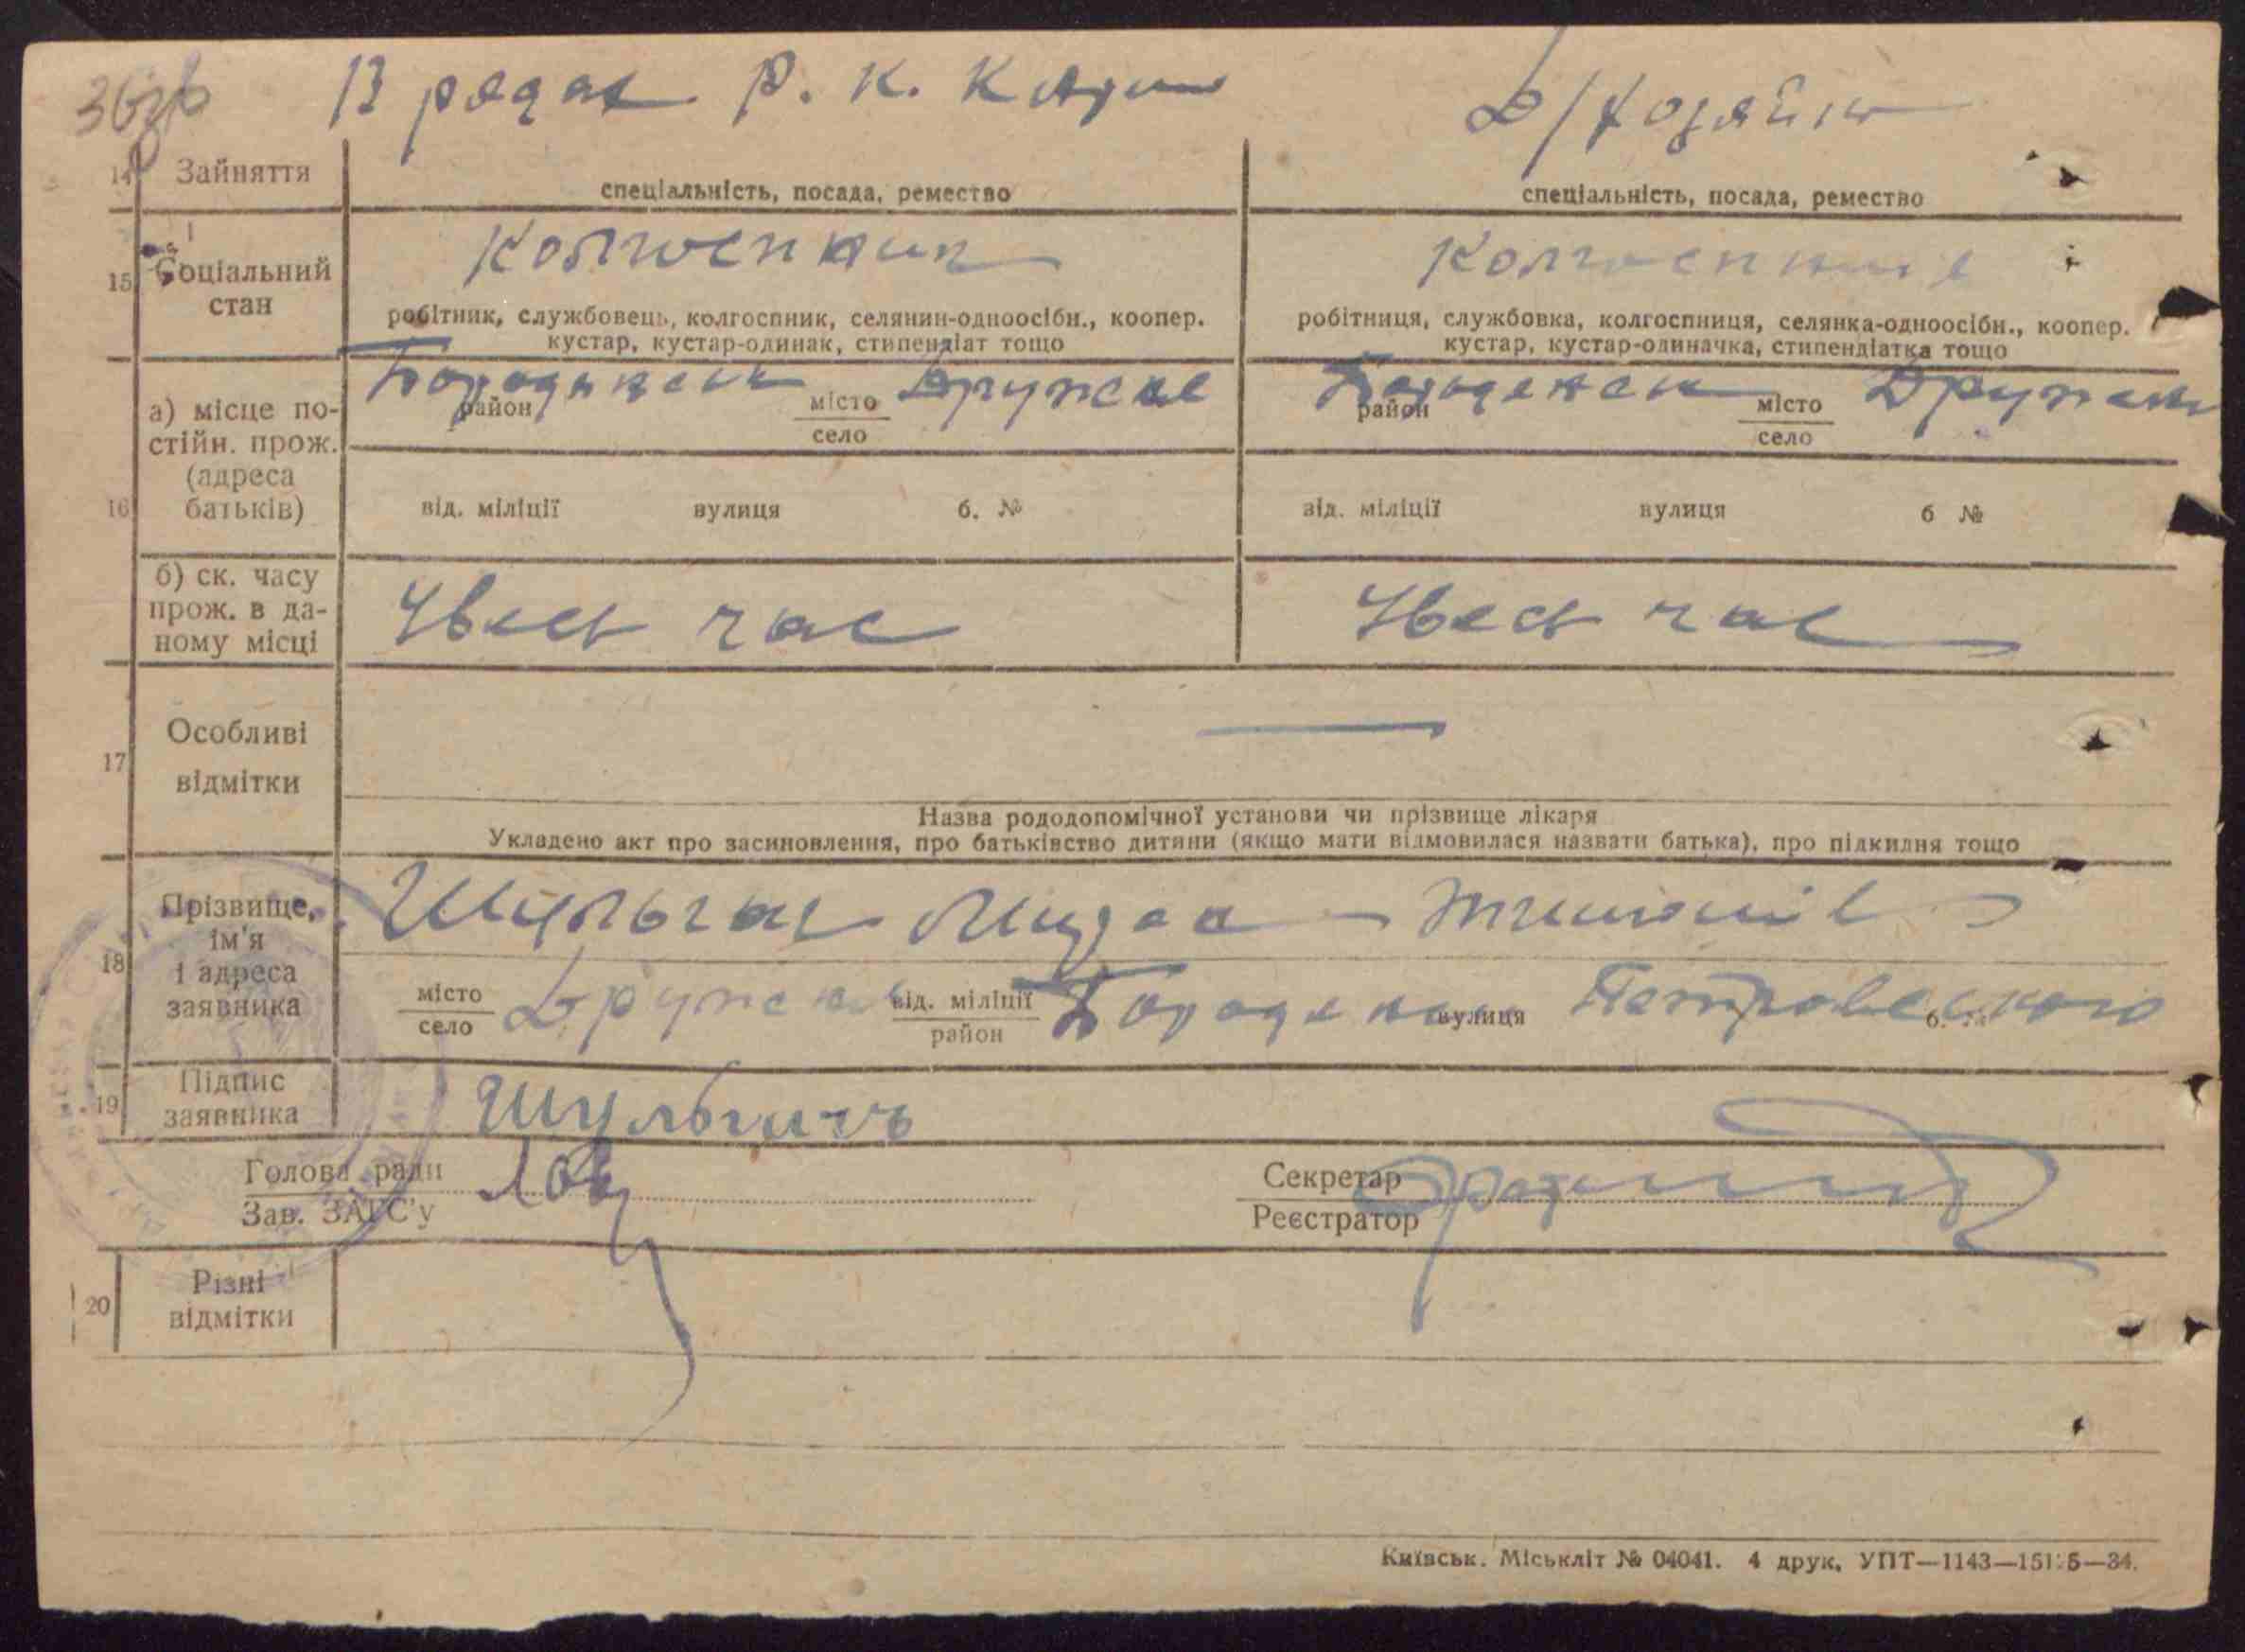 36зв
В рядах Р. К. К Армии Д/хозяйка
14 Зайняття спеціальність, посада, ремество спеціальність, посада, ремество
Колгоспник Колгоспниця
15 Соціальний стан
робітник, службовець, колгоспник, селянин-одноосібн., коопер. робітниця, службовка, колгоспниця, селянка-одноосібн., коопер.
кустар, кустар-одинак, стипендіат тощо кустар, кустар-одиначка, стипендіатка тощо
16 а) місце постійн. прож. (адреса батьків)
район місто Дружня район місто Дружня
село село
від. міліції вулиця б. № від. міліції вулиця б №
б) ск. часу прож. в даному місці Увесь час Увесь час
17 Особливі відмітки —
Назва рододопомічної установи чи прізвище лікаря
Укладено акт про засиновлення, про батьківство дитини (якщо мати відмовилася назвати батька), про підкидня тощо
18 Прізвище, ім'я і адреса заявника Шульга
місто Дружня від. міліції вулиця Петровського б. №
село район
19 Підпис заявника
Голова ради Секретар
Зав. ЗАГС'у Реєстратор
20 Різні відмітки
Київськ. Міськліт № 04041. 4 друк, УПТ—1143—15115—34.